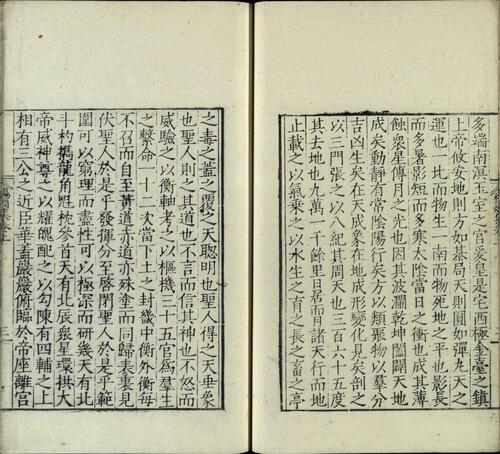 多端南溟玉室之宮爰皇是宅西極金臺之鎮
上帝攸安地則方如棊局天則圓如彈丸天之
運也一北而物生一南而物死地之平也影長
而多暑影短而多寒太陰當日之衝也成其薄
蝕衆星傳月之光也因其波瀾乾坤闔闢天地
成矣動靜有常陰陽行矣方以類聚物以羣分
吉凶生矣在天成象在地成形變化見矣剖之
以三門張之以八紀其周天也三百六十五度
其去地也九萬一千餘里日居而月諸天行而地
止載之以氣乘之以水生之育之長之畜之亭
之毒之蓋之覆之天聰明也聖人得之天垂象
也聖人則之其道也不言而信其神也不怒而
威驗之以衡軸考之以樞機三十五官爲羣生
之繫命一十二次當下土之封畿中衡外衡每
不召而自至黃道赤道亦殊塗而同歸表裏見
伏聖人於是乎發揮分至啓閉聖人於是乎範
圍可以窮理而盡性可以極深而研幾天有北
斗杓攜龍角魁枕參首天有北辰衆星環拱大
帝威神尊之以耀魄配之以勾陳有四輔之上
相有三公之近臣華蓋巖巖俯臨於帝座離宮